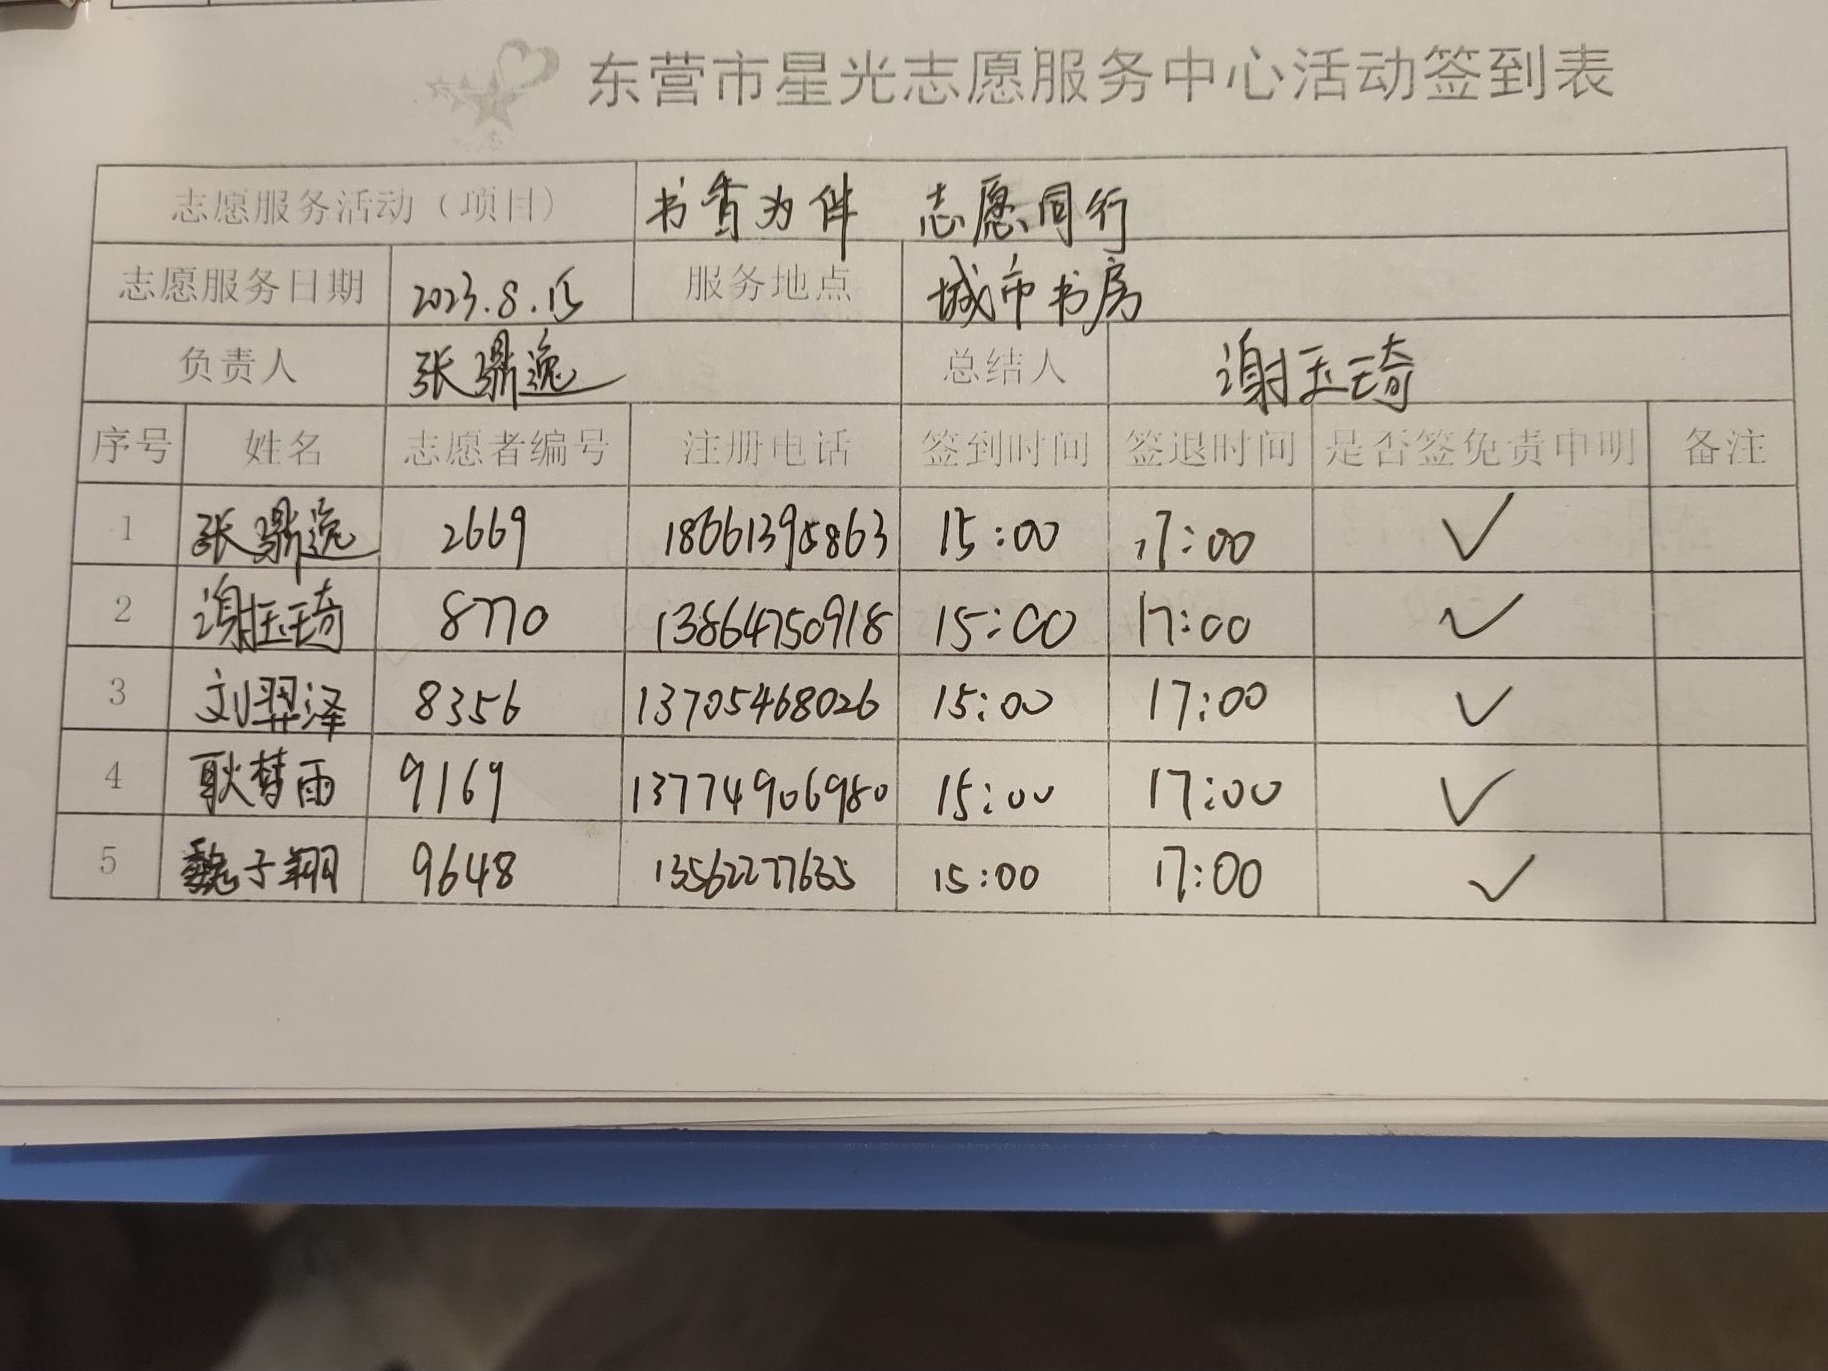 东营市星光志愿服务中心活动签到表
志愿服务活动（项目） 书香为伴 志愿同行
志愿服务日期 2023.8.15 服务地点 城市书房
负责人 张鼎逸 总结人 谢玉琦
序号 姓名 志愿者编号 注册电话 签到时间 签退时间 是否签免责申明 备注
1 张鼎逸 2669 18661395863 15:00 17:00 ✓
2 谢玉琦 8770 13864750918 15:00 17:00 ✓
3 刘羿泽 8356 13705468026 15:00 17:00 ✓
4 耿梦雨 9169 13774906980 15:00 17:00 ✓
5 魏子翔 9648 13562277635 15:00 17:00 ✓